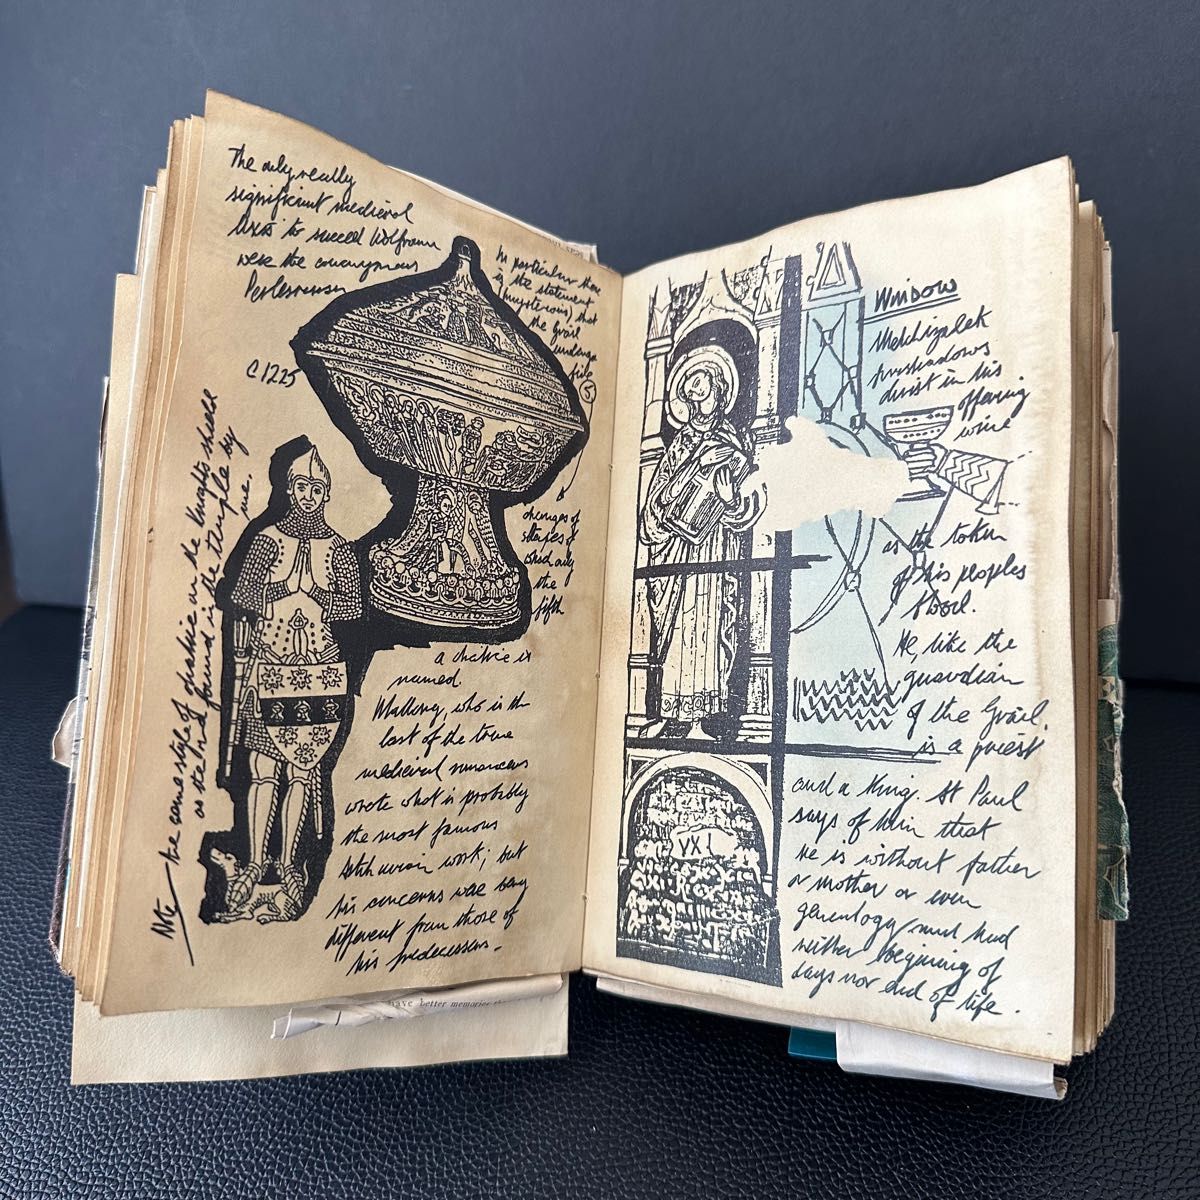 The only really
significant medieval
texts to succeed Wolfram
were the anonymous
Perlesvaus
C 1225
In particular there
is the statement
(mysterious) that
the Grail
undergo
five
5
changes of
shapes of
which only
the
fifth
a chalice is
named.
Mallory, who is the
last of the true
medieval romancers
wrote what is probably
the most famous
work; but
his concerns were being
different from those of
his predecessors -
Note the same style of
as the Knights shield
as the kind found in the temple by
me.
have better memories
Window
Melchizalek
foreshadows
christ in his
offering
wine
as the token
of his peoples
blood.
He, like the
guardian
of the Grail,
is a priest
and a King. St Paul
says of him that
He is without father
or mother or even
genealogy and had
neither beginning of
days nor end of life.
VXI